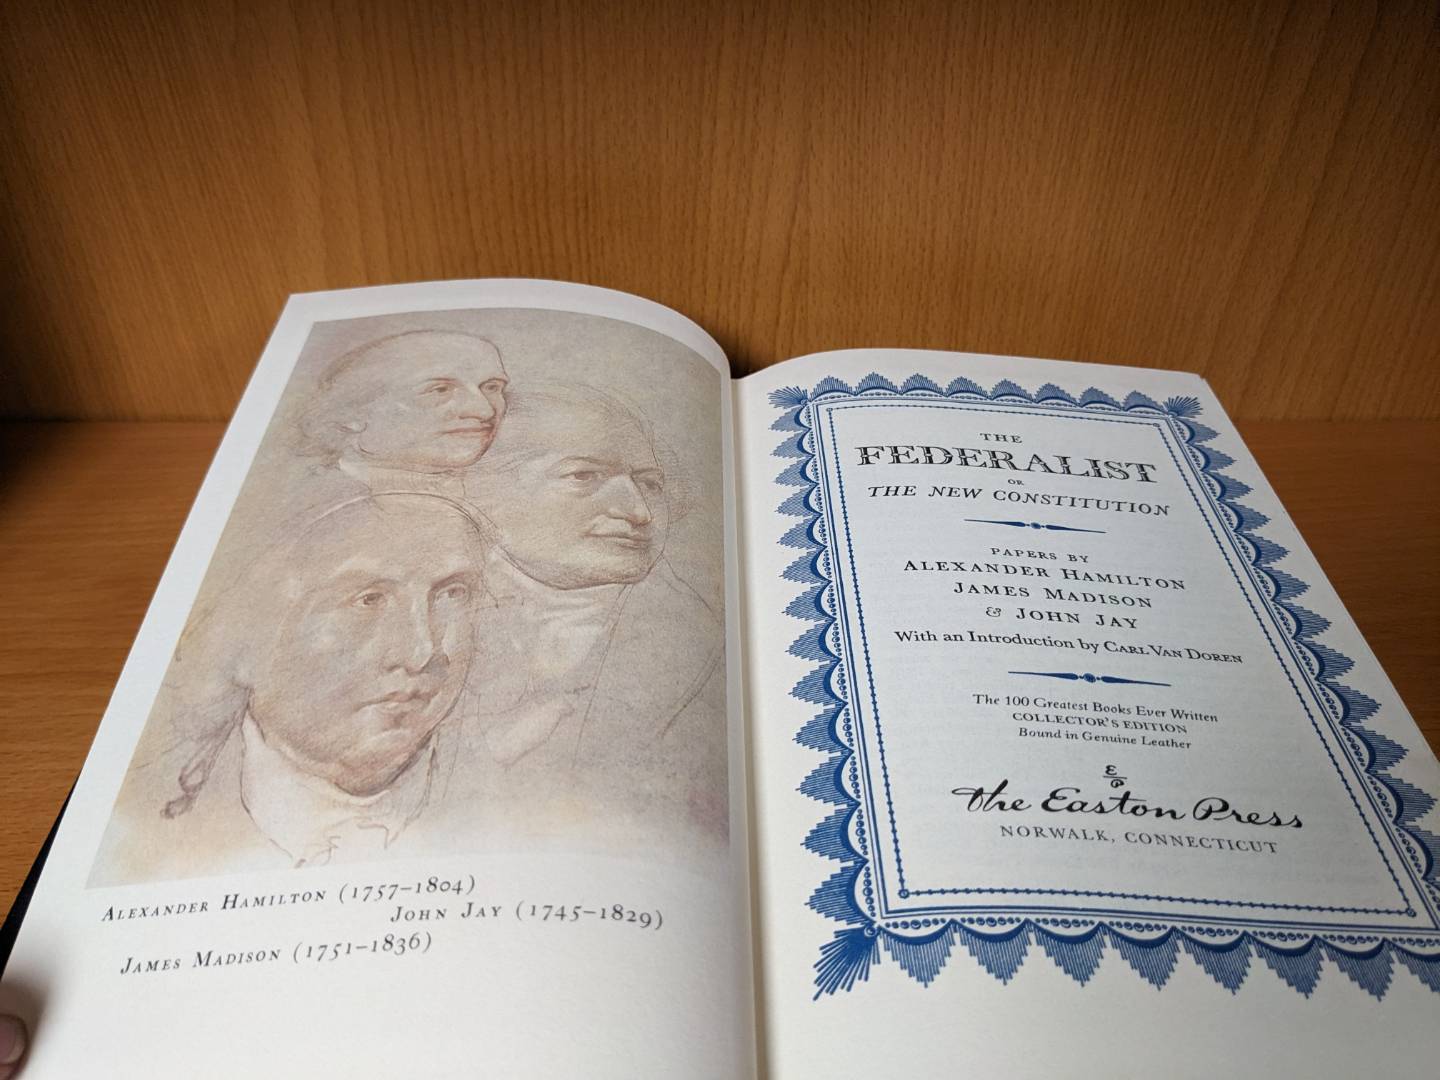 ALEXANDER HAMILTON (1757–1804)
JOHN JAY (1745–1829)
JAMES MADISON (1751–1836)
THE
FEDERALIST
OR
THE NEW CONSTITUTION
PAPERS BY
ALEXANDER HAMILTON
JAMES MADISON
& JOHN JAY
With an Introduction by CARL VAN DOREN
The 100 Greatest Books Ever Written
COLLECTOR'S EDITION
Bound in Genuine Leather
E
P
The Easton Press
NORWALK, CONNECTICUT